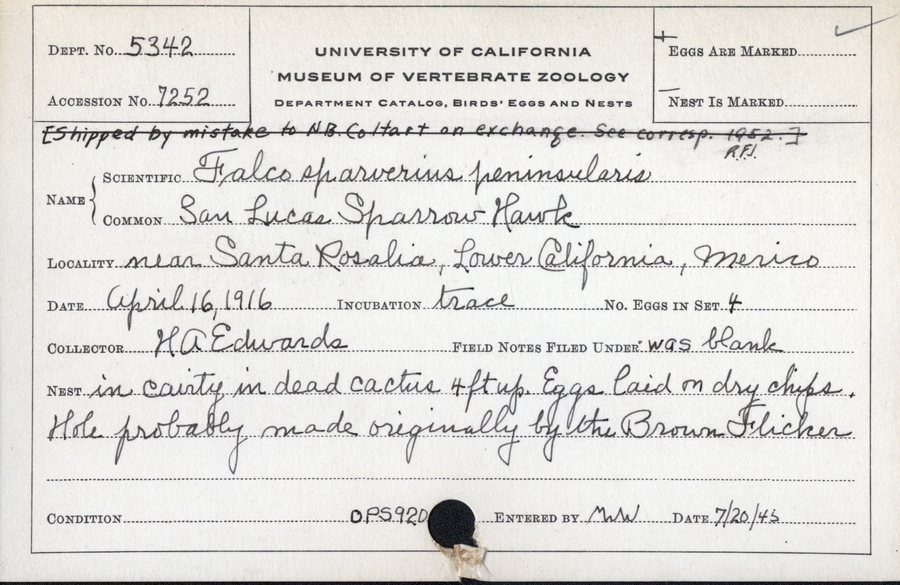 DEPT. No. 5342
ACCESSION No. 7252
UNIVERSITY OF CALIFORNIA
MUSEUM OF VERTEBRATE ZOOLOGY
DEPARTMENT CATALOG, BIRDS' EGGS AND NESTS
+ EGGS ARE MARKED ✓
— NEST IS MARKED
[Shipped by mistake to N.B. Coltart on exchange. See corresp. 1952.]
NAME { SCIENTIFIC Falco sparverius peninsularis
COMMON San Lucas Sparrow Hawk
LOCALITY near Santa Rosalia, Lower California, Mexico
DATE April 16, 1916 INCUBATION trace No. EGGS IN SET 4
COLLECTOR H A Edwards FIELD NOTES FILED UNDER was blank
NEST in cavity in dead cactus 4 ft up. Eggs laid on dry chips.
Hole probably made originally by the Brown Flicker
CONDITION OPS920 ENTERED BY MWW DATE 7/20/45